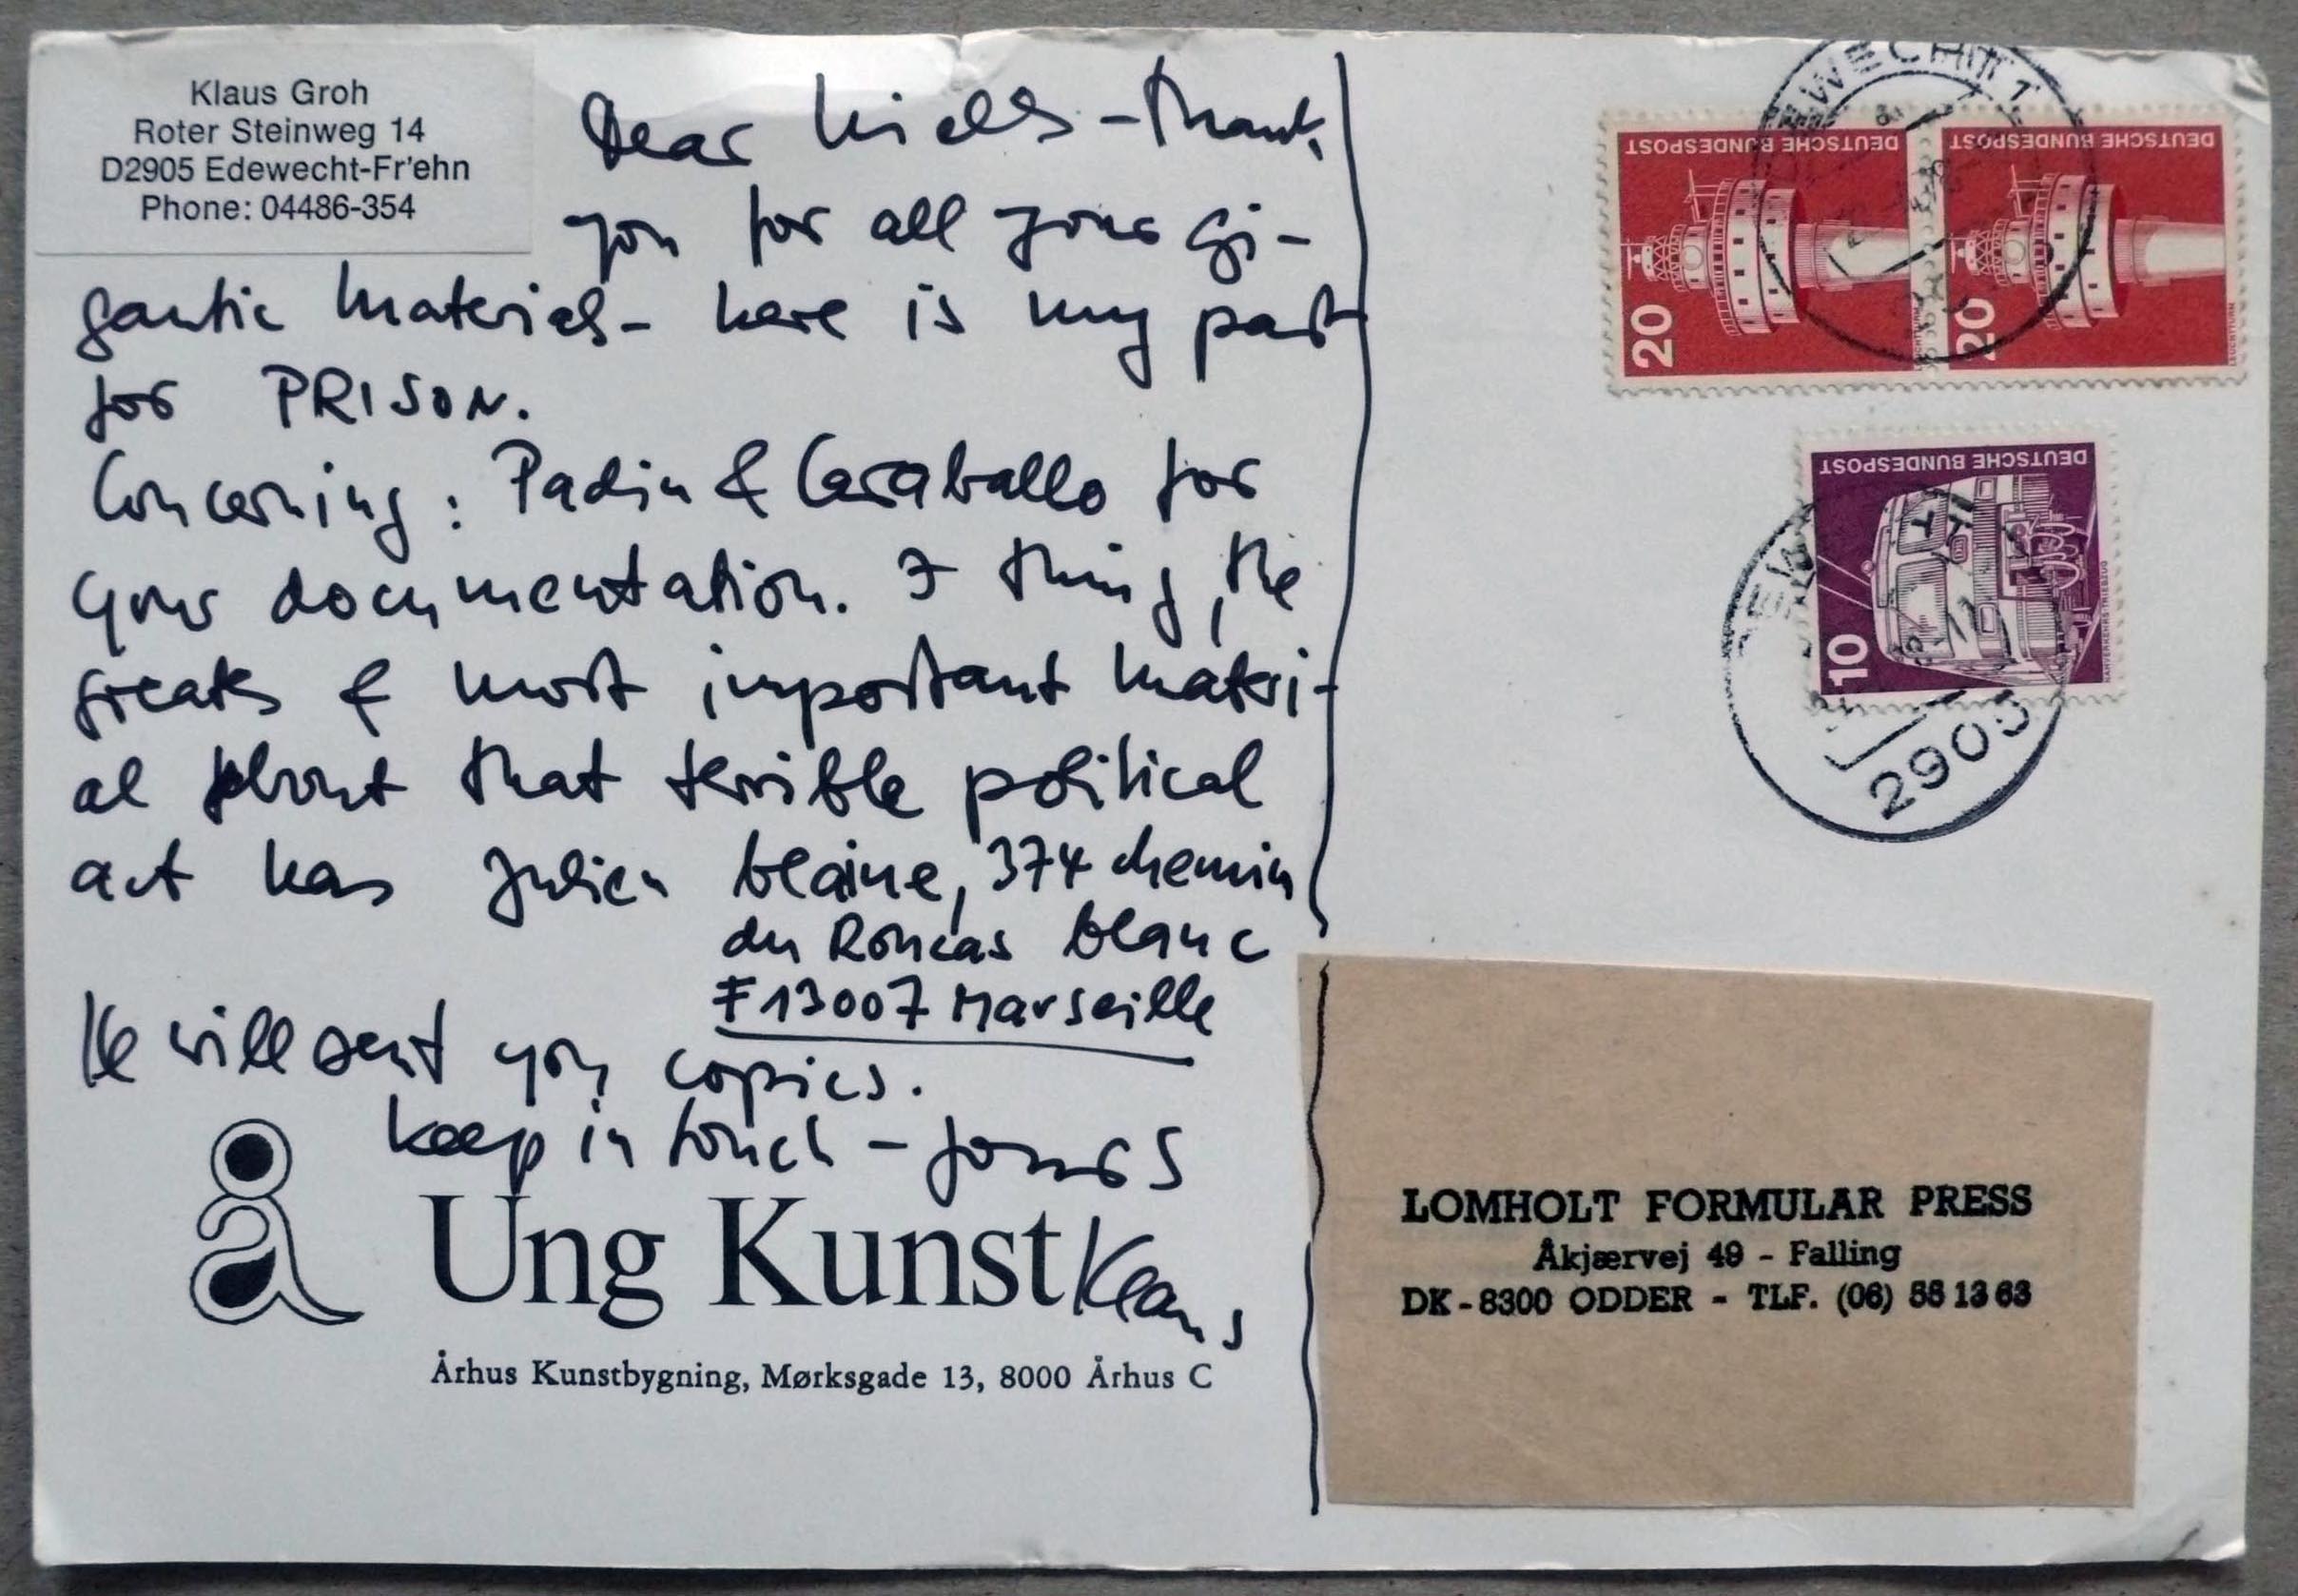 Klaus Groh
Roter Steinweg 14
D2905 Edewecht-Fr'ehn
Phone: 04486-354
Dear Niels - thank
you for all your gi-
gantic material - here is my part
for PRISON.
Concerning: Padin & Caraballo for
your documentation. I thing, the
greats & most important materi-
al about that terrible political
act has Julien blaine, 374 chemin
du Roucas blanc
F 13007 Marseille
He will sent you copies.
keep in touch - yours
Klaus
å Ung Kunst
Århus Kunstbygning, Mørksgade 13, 8000 Århus C
DEUTSCHE BUNDESPOST
20
DEUTSCHE BUNDESPOST
20
LEUCHTTURM
DEUTSCHE BUNDESPOST
10
NAHVERKEHRS-TRIEBZUG
2905
LOMHOLT FORMULAR PRESS
Åkjærvej 49 - Falling
DK-8300 ODDER - TLF. (06) 55 13 63